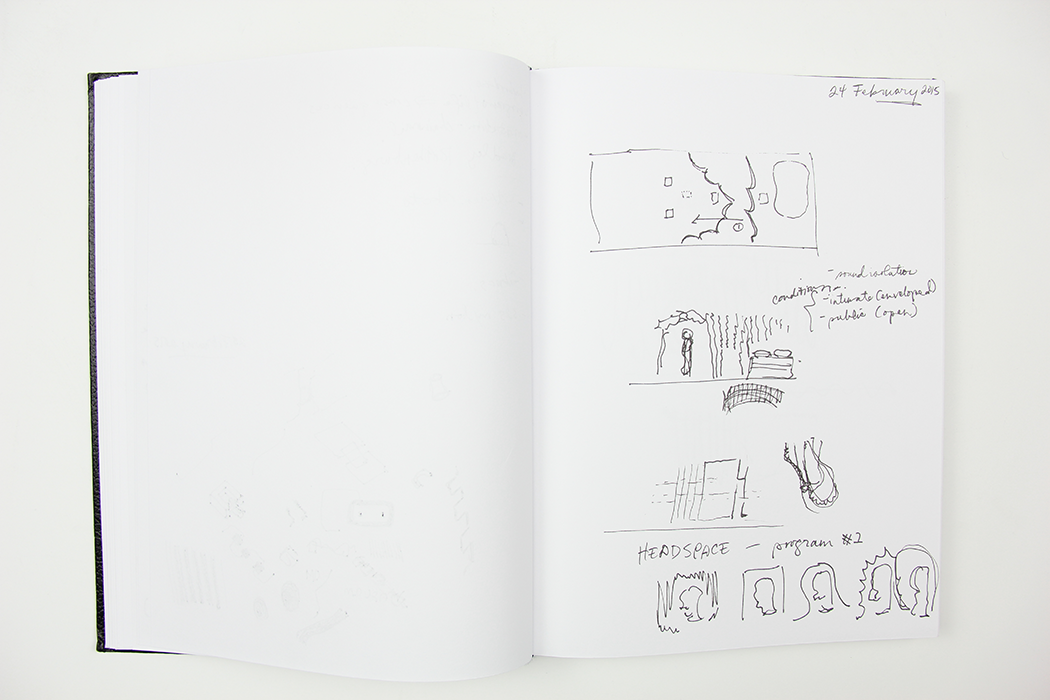 24 February 2015
①
- sound isolation
conditions
- intimate (enveloped)
- public (open)
HEADSPACE — program #2